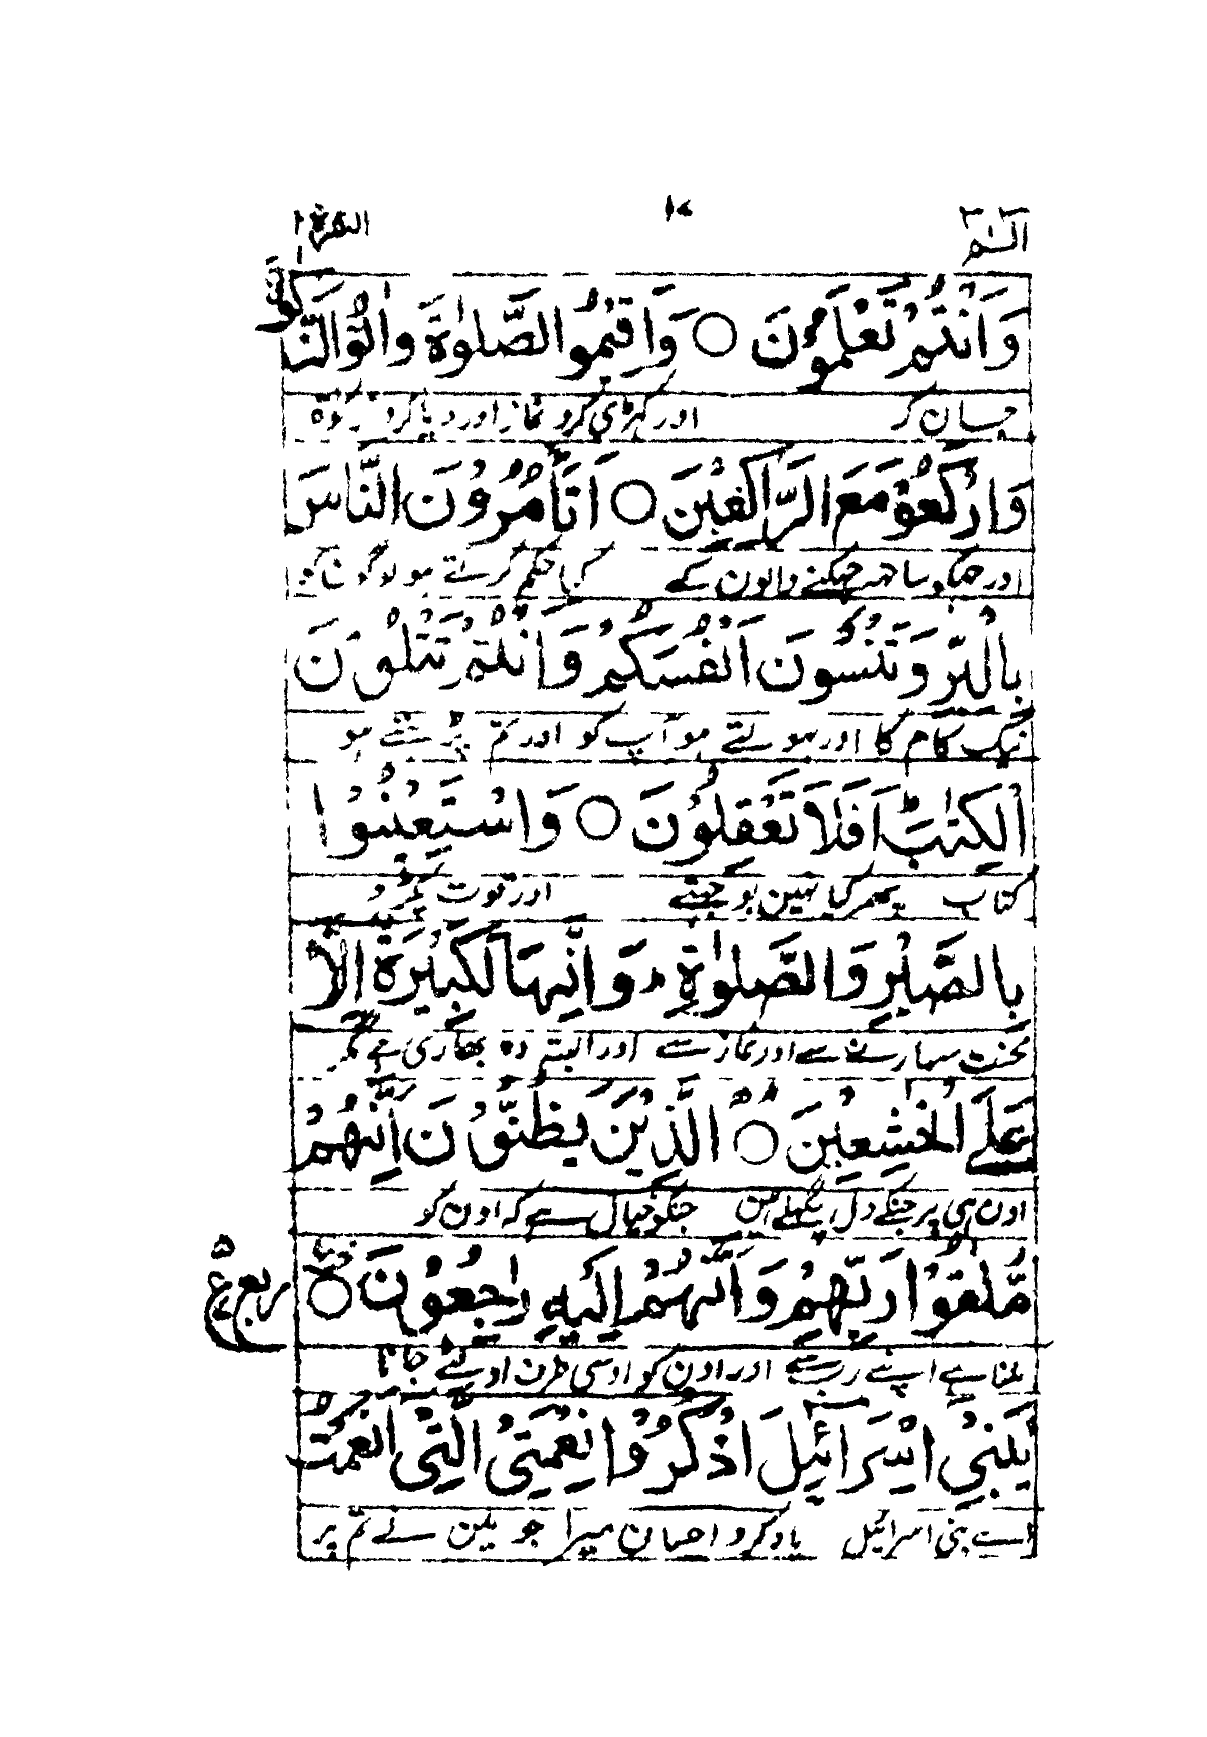 الٓمّٓ ١٠ البقرة ٢
وَاَنْتُمْ تَعْلَمُوْنَ ○ وَاَقِيْمُوا الصَّلٰوةَ وَاٰتُوا الزَّكٰوةَ
جان کر اور کہڑی کرو نماز اور دیا کرو زکوٰة
وَارْكَعُوْا مَعَ الرَّاكِعِيْنَ ○ اَتَاْمُرُوْنَ النَّاسَ
اور جھکو ساتھ جھکنے والون کے کیا حکم کرتے ہو لوگون کو
بِالْبِرِّ وَتَنْسَوْنَ اَنْفُسَكُمْ وَاَنْتُمْ تَتْلُوْنَ
نیک کام کا اور بھولتے ہو آپ کو اور تم پڑہتے ہو
الْكِتٰبَ ط اَفَلَا تَعْقِلُوْنَ ○ وَاسْتَعِيْنُوْا
کتاب پھر کیا نہین بوجھتے اور قوت پکڑو
بِالصَّبْرِ وَالصَّلٰوةِ وَاِنَّهَا لَكَبِيْرَةٌ اِلَّا
محنت سہارنے سے اور نماز سے اور البتہ وہ بھاری ہے مگر
عَلَى الْخٰشِعِيْنَ ○ الَّذِيْنَ يَظُنُّوْنَ اَنَّهُمْ
اون ہی پر جنکے دل پگھلے ہین جنکو خیال ہے کہ اون کو
مُّلٰقُوْا رَبِّهِمْ وَاَنَّهُمْ اِلَيْهِ رٰجِعُوْنَ ○
ربع ع ٥
ملنا ہے اپنے رب سے اور اون کو اوسی طرف اولٹے جانا
يٰبَنِيْ اِسْرَائِيْلَ اذْكُرُوْا نِعْمَتِيَ الَّتِيْ اَنْعَمْتُ
اے بنی اسرائیل یاد کرو احسان میرا جو مین نے تم پر